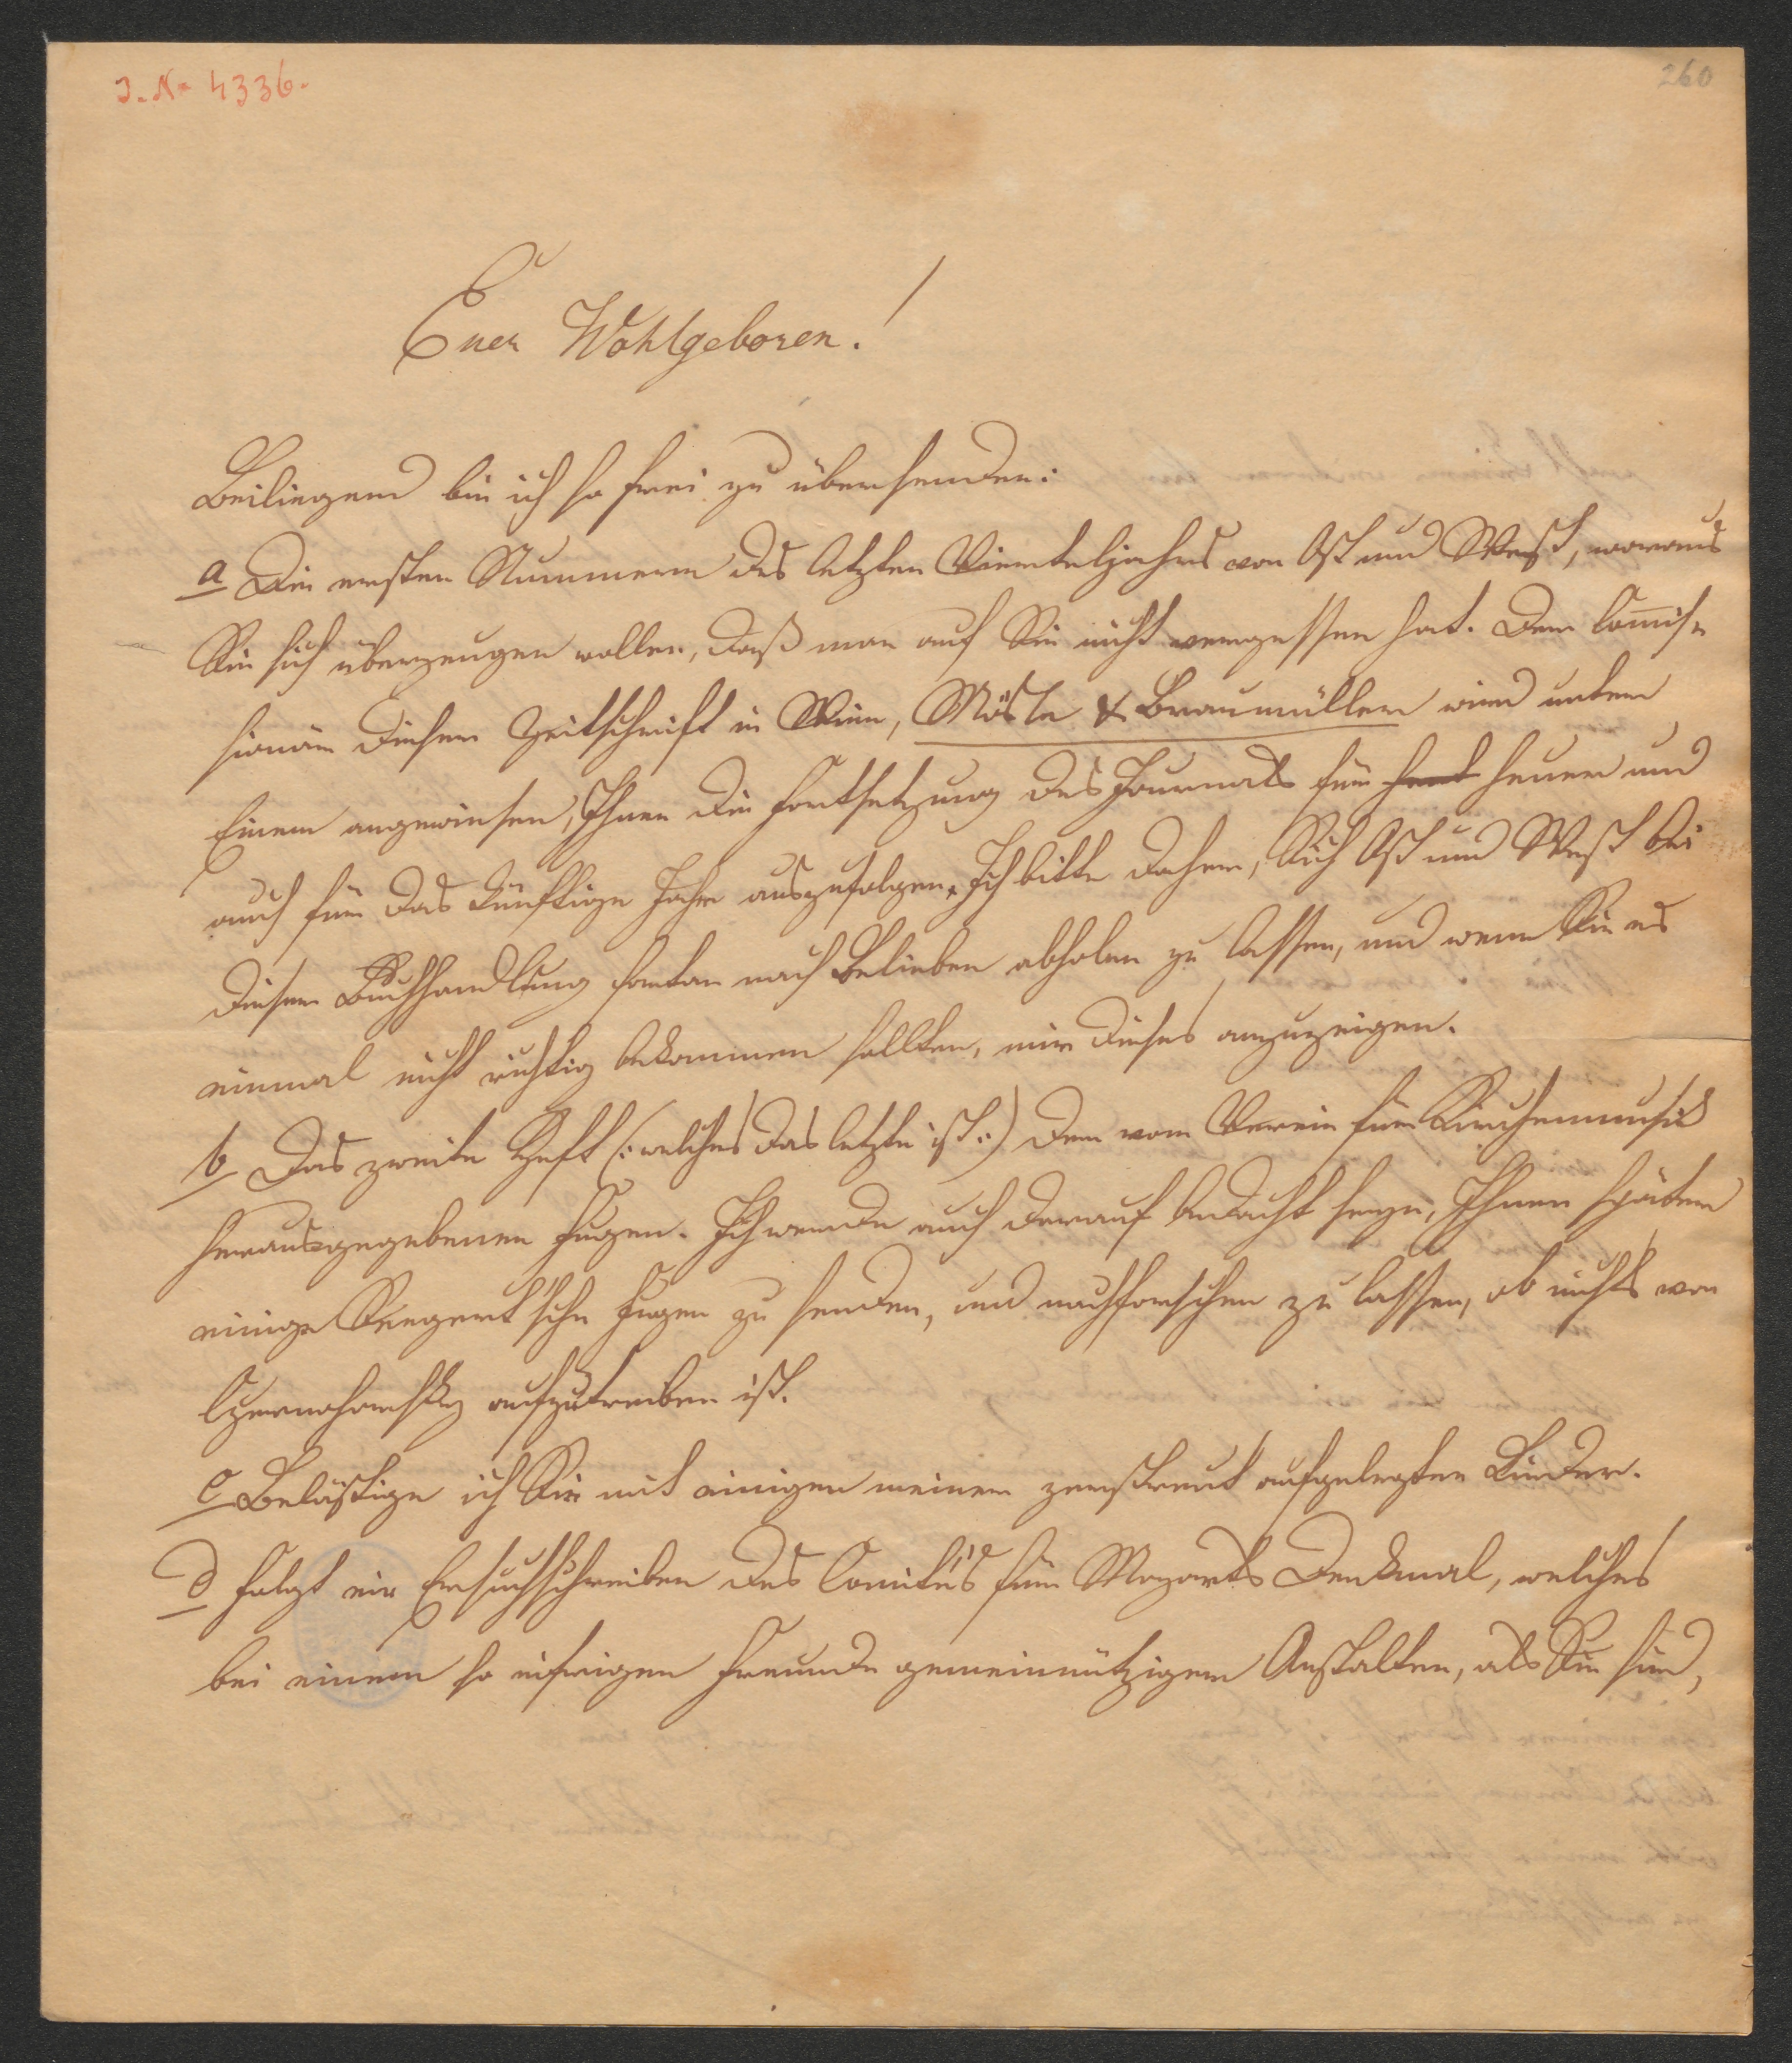 J. N. 4336.
260
Euer Wohlgeboren!
Beiliegend bin ich so frei zu übersenden:
a Die ersten Nummern des letzten Vierteljahrs von Ost und West, woraus
Sie sich überzeugen wollen, daß man auf Sie nicht vergessen hat. Der Com̅is-
sionär dieser Zeitschrift in Wien, Mösle & Braumüller wird unter
Einem angewiesen, Ihnen die Fortsetzung des Journals für heuer und
auch für das künftige Jahr auszufolgen. Ich bitte daher, Sich Ost und West bei
dieser Buchhandlung fortan nach Belieben abholen zu lassen, und wenn Sie es
einmal nicht richtig bekommen sollten, mir dieses anzuzeigen.
b Das zweite Heft (: welches das letzte ist :) der vom Verein für Kirchenmusik
herausgegebenen Fugen. Ich werde auch darauf bedacht seyn, Ihnen später
einige Seegert'sche Fugen zu senden, und nachforschen zu lassen, ob nichts von
Czernohorsky aufzutreiben ist.
c Belästige ich Sie mit einigen meiner zerstreut aufgelegten Lieder.
d Folgt ein Ersuchschreiben des Comité's für Mozarts Denkmal, welches
bei einem so eifrigen Freunde gemeinnütziger Anstalten, als Sie sind,